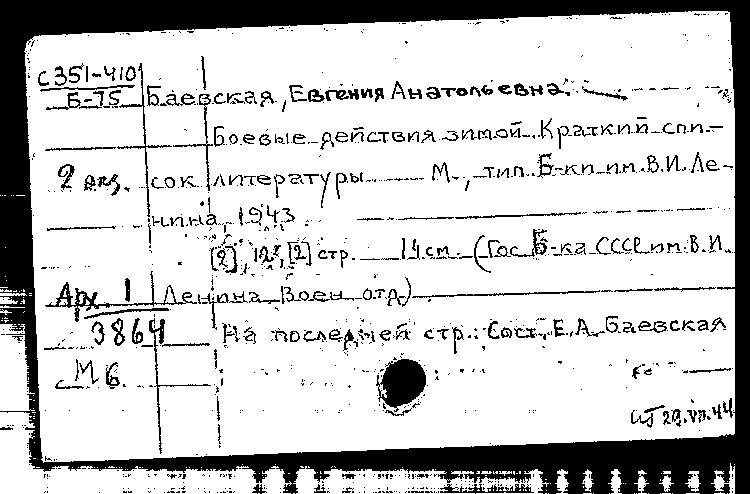 С351-410
Б-75 Баевская, Евгения Анатольевна.
Боевые действия зимой. Краткий спи-
2 экз. сок литературы М., тип. Б-ки им. В.И. Ле-
нина, 1943
[2], 12, [2] стр. 14 см. (Гос. Б-ка СССР им. В.И.
Арх. 1 Ленина. Воен. отд.)
3864 На последней стр.: Сост. Е.А. Баевская
М6.
29.VII.44